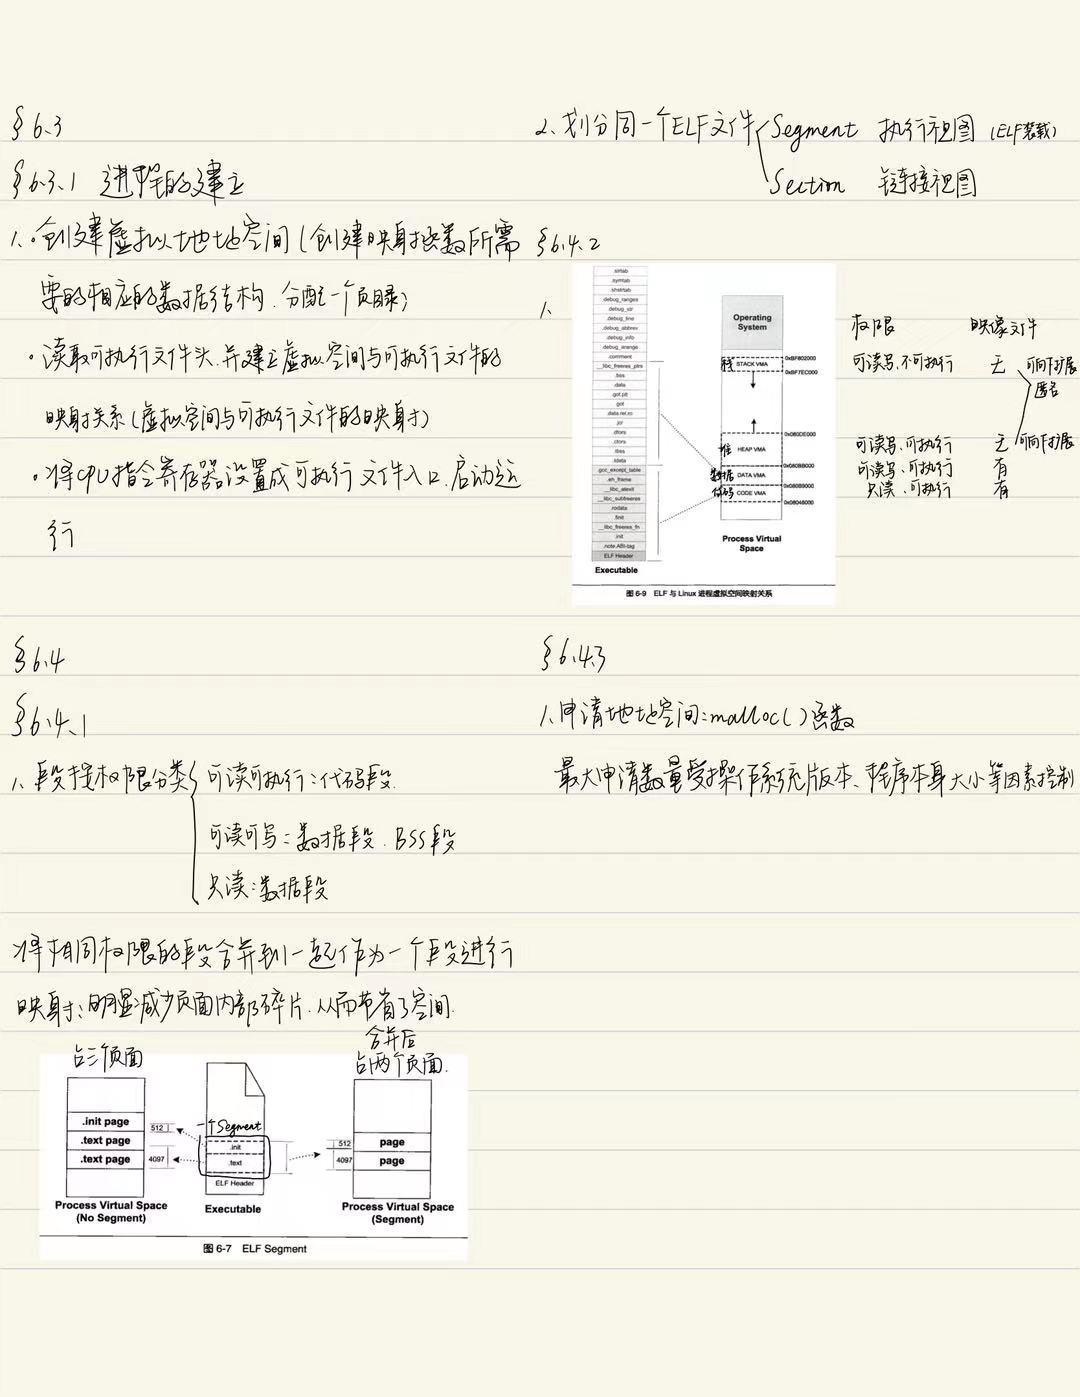 §6.3
§6.3.1 进程的建立
1.·创建虚拟地址空间(创建映射函数所需
要的相应的数据结构.分配一个页目录)
·读取可执行文件头.并建立虚拟空间与可执行文件的
映射关系(虚拟空间与可执行文件的映射)
·将CPU指令寄存器设置成可执行文件入口.启动运
行
§6.4
§6.4.1
1.段按权限分类
可读可执行:代码段.
可读可写:数据段.BSS段
只读:数据段
将相同权限的段合并到一起作为一个段进行
映射:明显减少页面内部碎片.从而节省了空间.
占三个页面
合并后
占两个页面.
.init page
.text page
.text page
512
4097
一个Segment
.init
.text
ELF Header
512
4097
page
page
Process Virtual Space
(No Segment)
Executable
Process Virtual Space
(Segment)
图 6-7 ELF Segment
2.划分同一个ELF文件
Segment 执行视图 (ELF装载)
Section 链接视图
§6.4.2
1.
.strtab
.symtab
.shstrtab
.debug_ranges
.debug_str
.debug_line
.debug_abbrev
.debug_info
.debug_arange
.comment
__libc_freeres_ptrs
.bss
.data
.got.plt
.got
.data.rel.ro
.jcr
.dtors
.ctors
.tbss
.tdata
.gcc_except_table
.eh_frame
__libc_atexit
__libc_subfreeres
.rodata
.finit
__libc_freeres_fn
.init
.note.ABI-tag
ELF Header
Executable
Operating
System
栈 STACK VMA
0xBF802000
0xBF7EC000
堆 HEAP VMA
0x080DE000
数据 DATA VMA
0x080BB000
代码 CODE VMA
0x080B9000
0x08048000
Process Virtual
Space
图 6-9 ELF 与 Linux 进程虚拟空间映射关系
权限 映像文件
可读写、不可执行 无 可向下扩展
匿名
可读写、可执行 无 可向下扩展
可读写、可执行 有
只读、可执行 有
§6.4.3
1.申请地址空间:malloc()函数
最大申请数量受操作系统版本、程序本身大小等因素控制